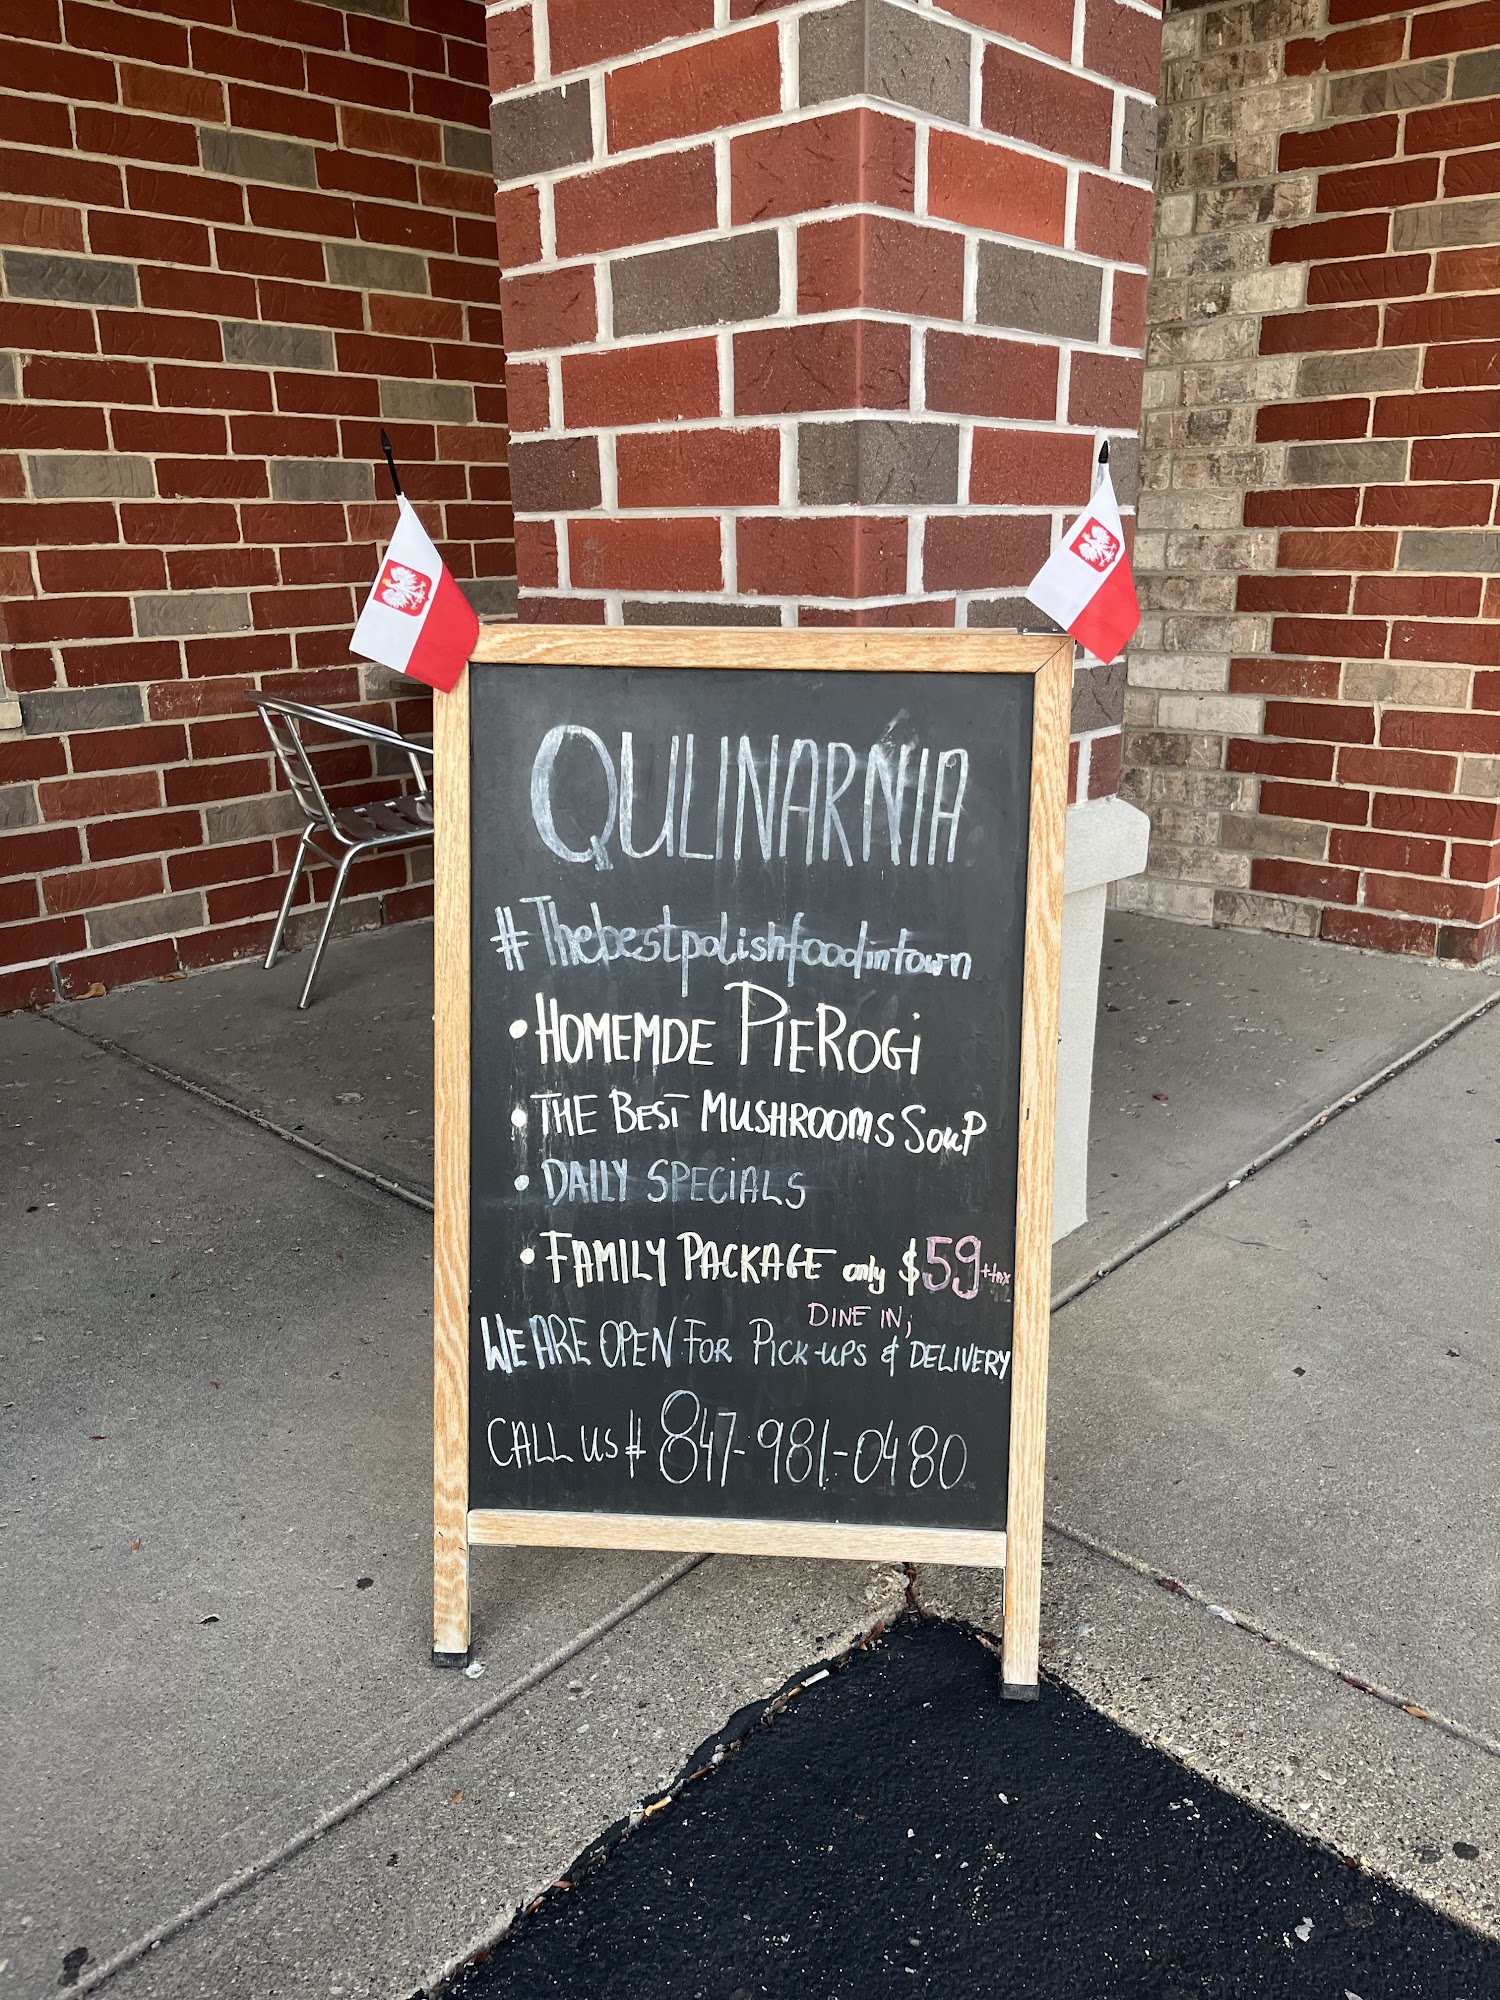 QULINARŃIA
#Thebestpolishfoodintown
• HOMEMDE PIEROGi
• THE BEST MUSHROOMS SOUP
• DAILY SPECiALS
• FAMILY PACKAGE only $59+tax
DINE IN;
WE ARE OPEN FOR PICK-UPS & DELIVERY
CALL US # 847-981-0480